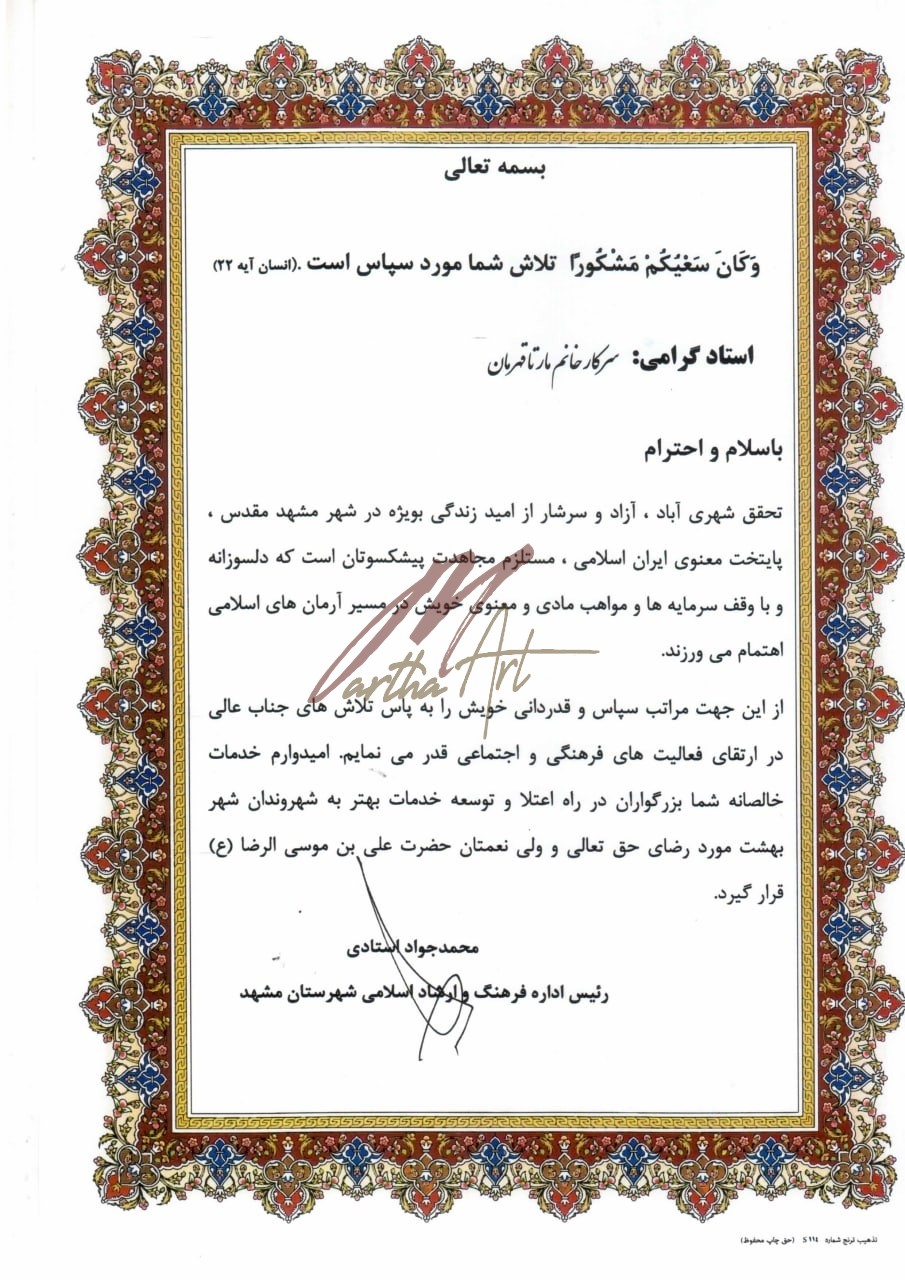 بسمه تعالی
وَكَانَ سَعْيُكُمْ مَشْكُورًا تلاش شما مورد سپاس است .(انسان آیه ۲۲)
استاد گرامی: سرکار خانم مارتا قهرمان
باسلام و احترام
تحقق شهری آباد ، آزاد و سرشار از امید زندگی بویژه در شهر مشهد مقدس ،
پایتخت معنوی ایران اسلامی ، مستلزم مجاهدت پیشکسوتان است که دلسوزانه
و با وقف سرمایه ها و مواهب مادی و معنوی خویش در مسیر آرمان های اسلامی
اهتمام می ورزند.
Martha Art
از این جهت مراتب سپاس و قدردانی خویش را به پاس تلاش های جناب عالی
در ارتقای فعالیت های فرهنگی و اجتماعی قدر می نمایم. امیدوارم خدمات
خالصانه شما بزرگواران در راه اعتلا و توسعه خدمات بهتر به شهروندان شهر
بهشت مورد رضای حق تعالی و ولی نعمتان حضرت علی بن موسی الرضا (ع)
قرار گیرد.
محمدجواد استادی
رئیس اداره فرهنگ و ارشاد اسلامی شهرستان مشهد
تذهیب ترنج شماره S ۱۱٤ (حق چاپ محفوظ)